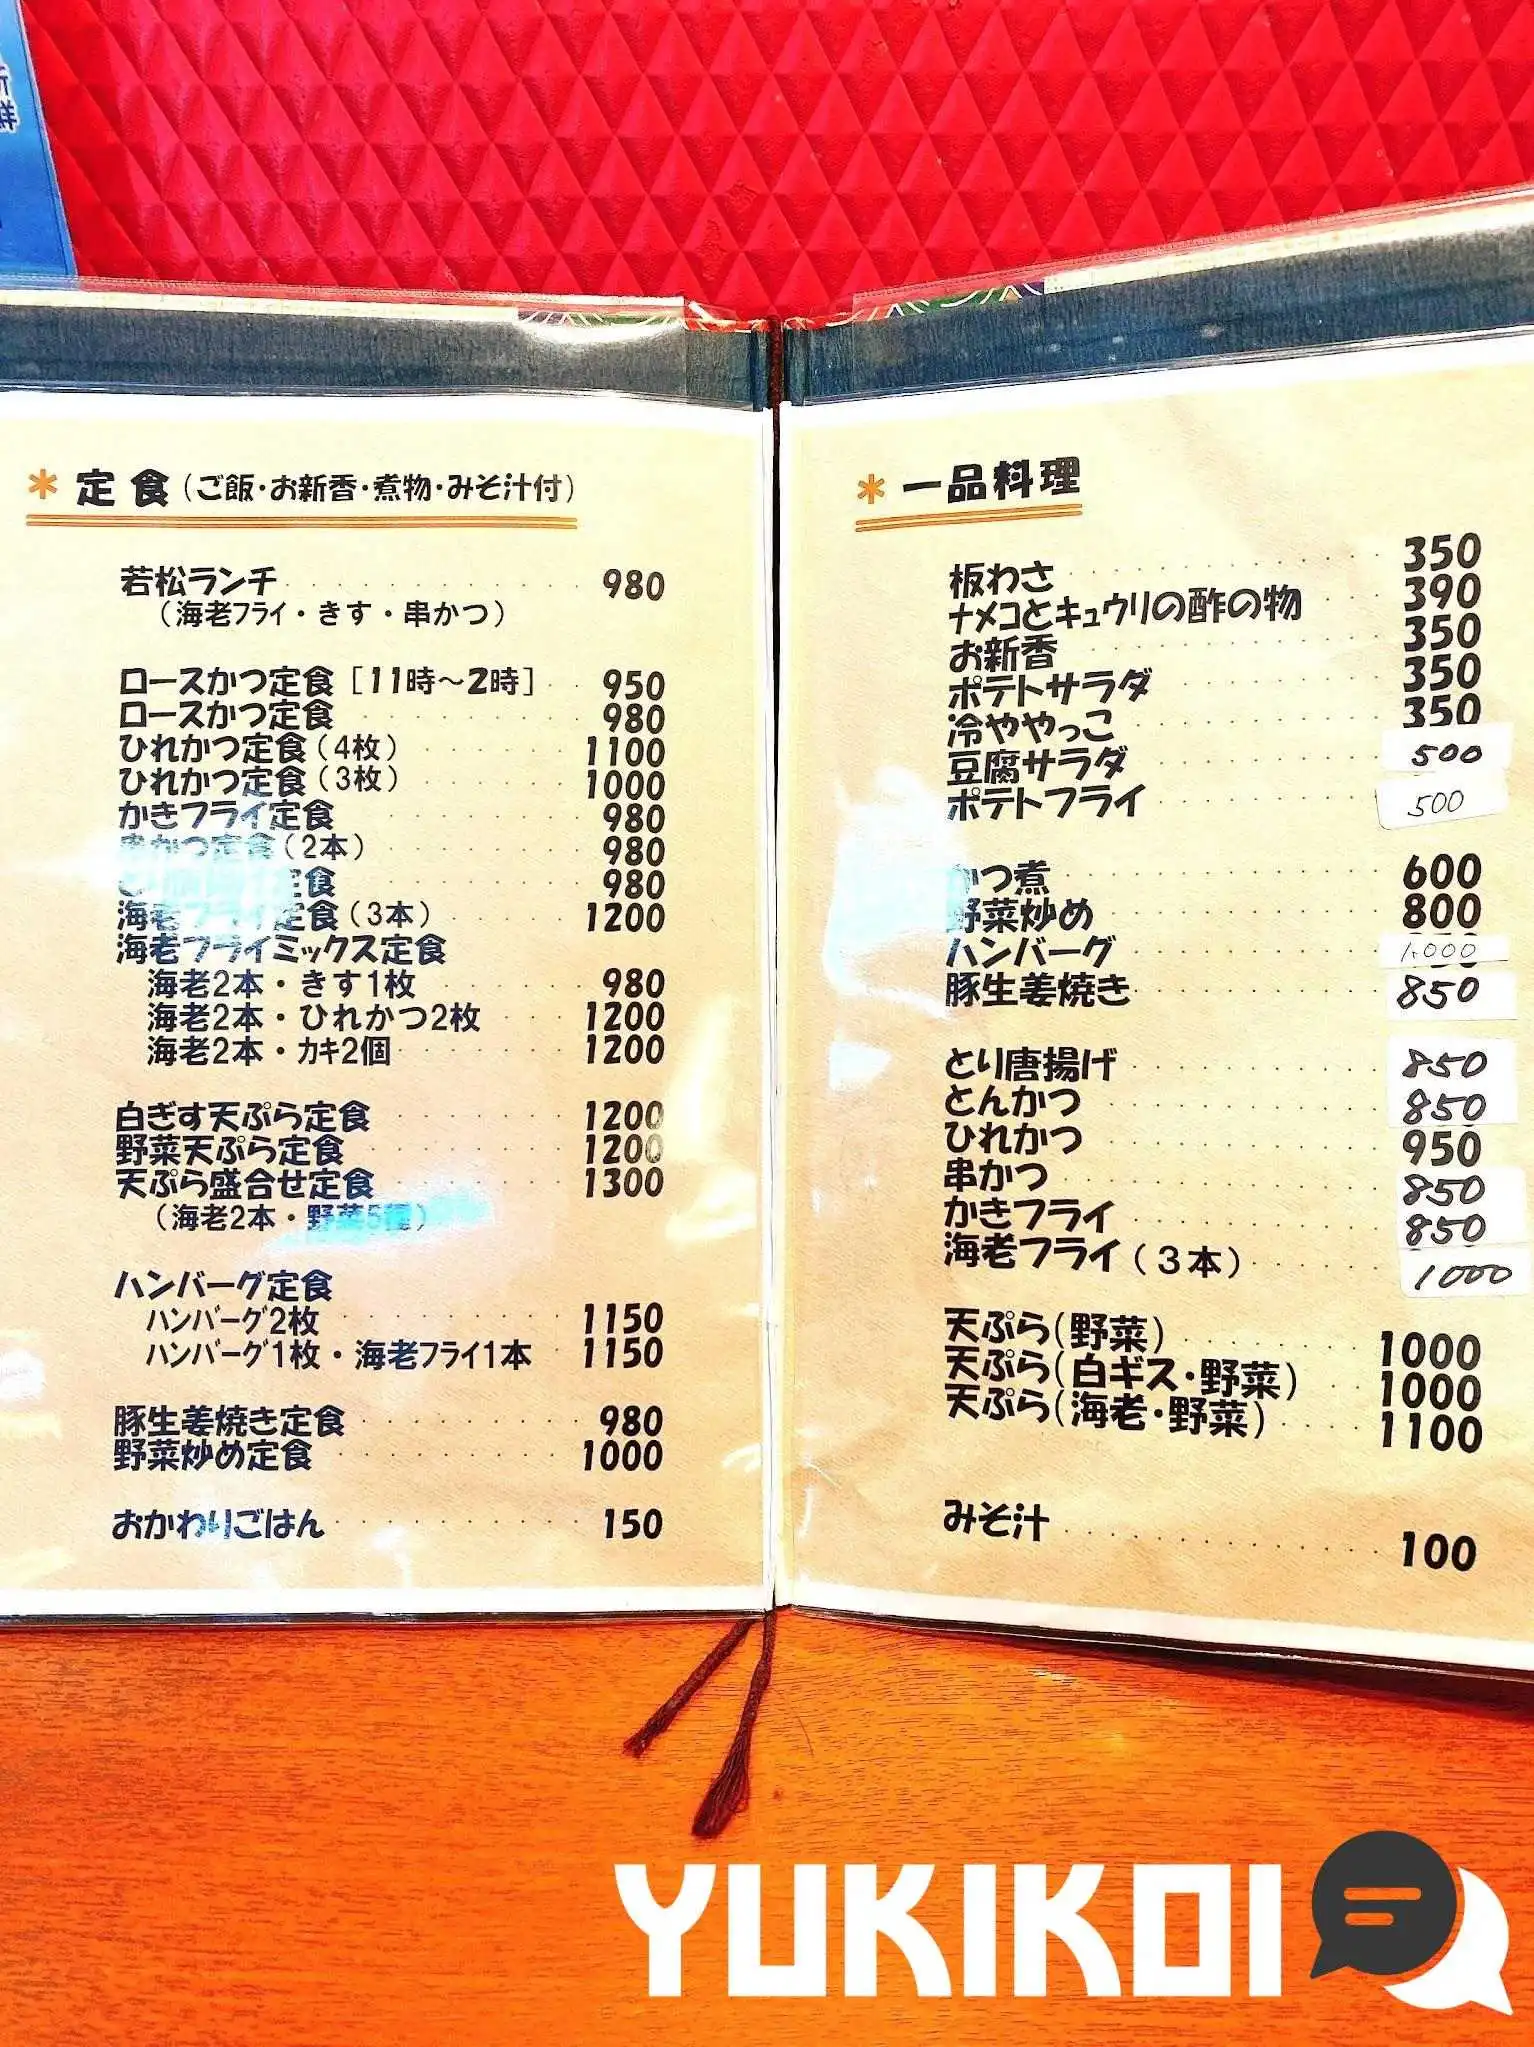 新鮮
＊定食（ご飯・お新香・煮物・みそ汁付）
若松ランチ 980
（海老フライ・きす・串かつ）
ロースかつ定食［11時～2時］ 950
ロースかつ定食 980
ひれかつ定食（4枚） 1100
ひれかつ定食（3枚） 1000
かきフライ定食 980
串かつ定食（2本） 980
定食 980
海老フライ定食（3本） 1200
海老フライミックス定食
海老2本・きす1枚 980
海老2本・ひれかつ2枚 1200
海老2本・カキ2個 1200
白ぎす天ぷら定食 1200
野菜天ぷら定食 1200
天ぷら盛合せ定食 1300
（海老2本・野菜5種）
ハンバーグ定食
ハンバーグ2枚 1150
ハンバーグ1枚・海老フライ1本 1150
豚生姜焼き定食 980
野菜炒め定食 1000
おかわりごはん 150
＊一品料理
板わさ 350
ナメコとキュウリの酢の物 390
お新香 350
ポテトサラダ 350
冷ややっこ 350
豆腐サラダ 500
ポテトフライ 500
かつ煮 600
野菜炒め 800
ハンバーグ 1.000
豚生姜焼き 850
とり唐揚げ 850
とんかつ 850
ひれかつ 950
串かつ 850
かきフライ 850
海老フライ（３本） 1000
天ぷら（野菜） 1000
天ぷら（白ギス・野菜） 1000
天ぷら（海老・野菜） 1100
みそ汁 100
YUKIKOI